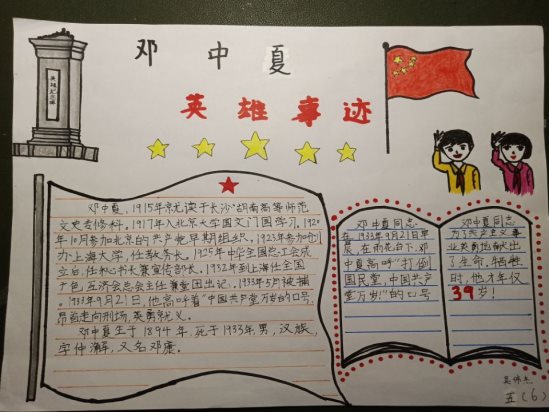 邓中夏
英雄事迹
邓中夏，1915年就读于长沙"湖南高等师范
文史专修科，1917年入北京大学国文门国学习，1920
年10月参加北京的共产党早期组织，1923年参加创
办上海大学，任教务长。1925年中华全国总工会成
立后，任秘书长兼宣传部长。1932年到上海任全国
互济会总会主任兼党团书记。1933年5月被捕。
1933年9月21日，他高呼着"中国共产党万岁的口号，
昂首走向刑场，英勇就义。
邓中夏生于1894年，死于1933年，男，汉族，
字仲澥，又名邓康。
邓中夏同志
在1933年9月21日早
晨，在雨花台下，邓
中夏高呼"打倒
国民党，中国共产
党万岁！"的口号
邓中夏同志
为了共产主义事
业英勇地献出
了生命，牺牲
时，他才年仅
39岁！
五（6）